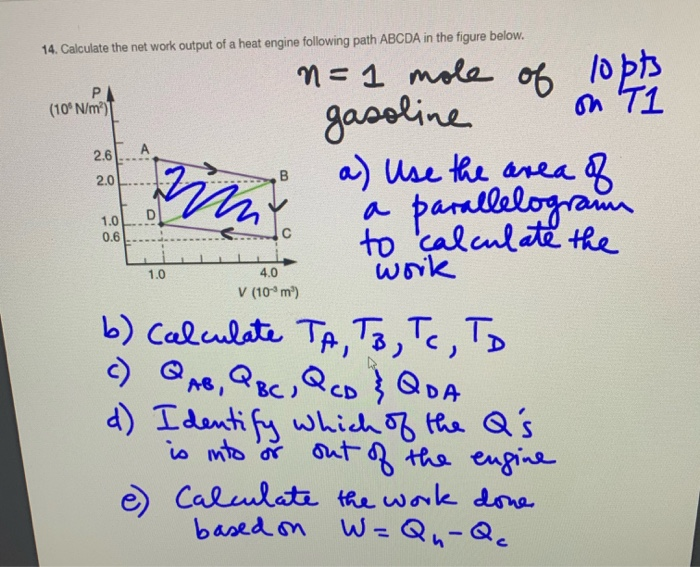 14. Calculate the net work output of a heat engine following path ABCDA in the figure below.
n = 1 mole of gasoline
10 pts on T1
P
(10⁶ N/m²)
2.6
2.0
1.0
0.6
A
B
C
D
1.0
4.0
V (10⁻³ m³)
a) Use the area of
a parallelogram
to calculate the
work
b) Calculate T_A, T_B, T_C, T_D
c) Q_AB, Q_BC, Q_CD & Q_DA
d) Identify which of the Q's
is into or out of the engine
e) Calculate the work done
based on W = Q_h - Q_c